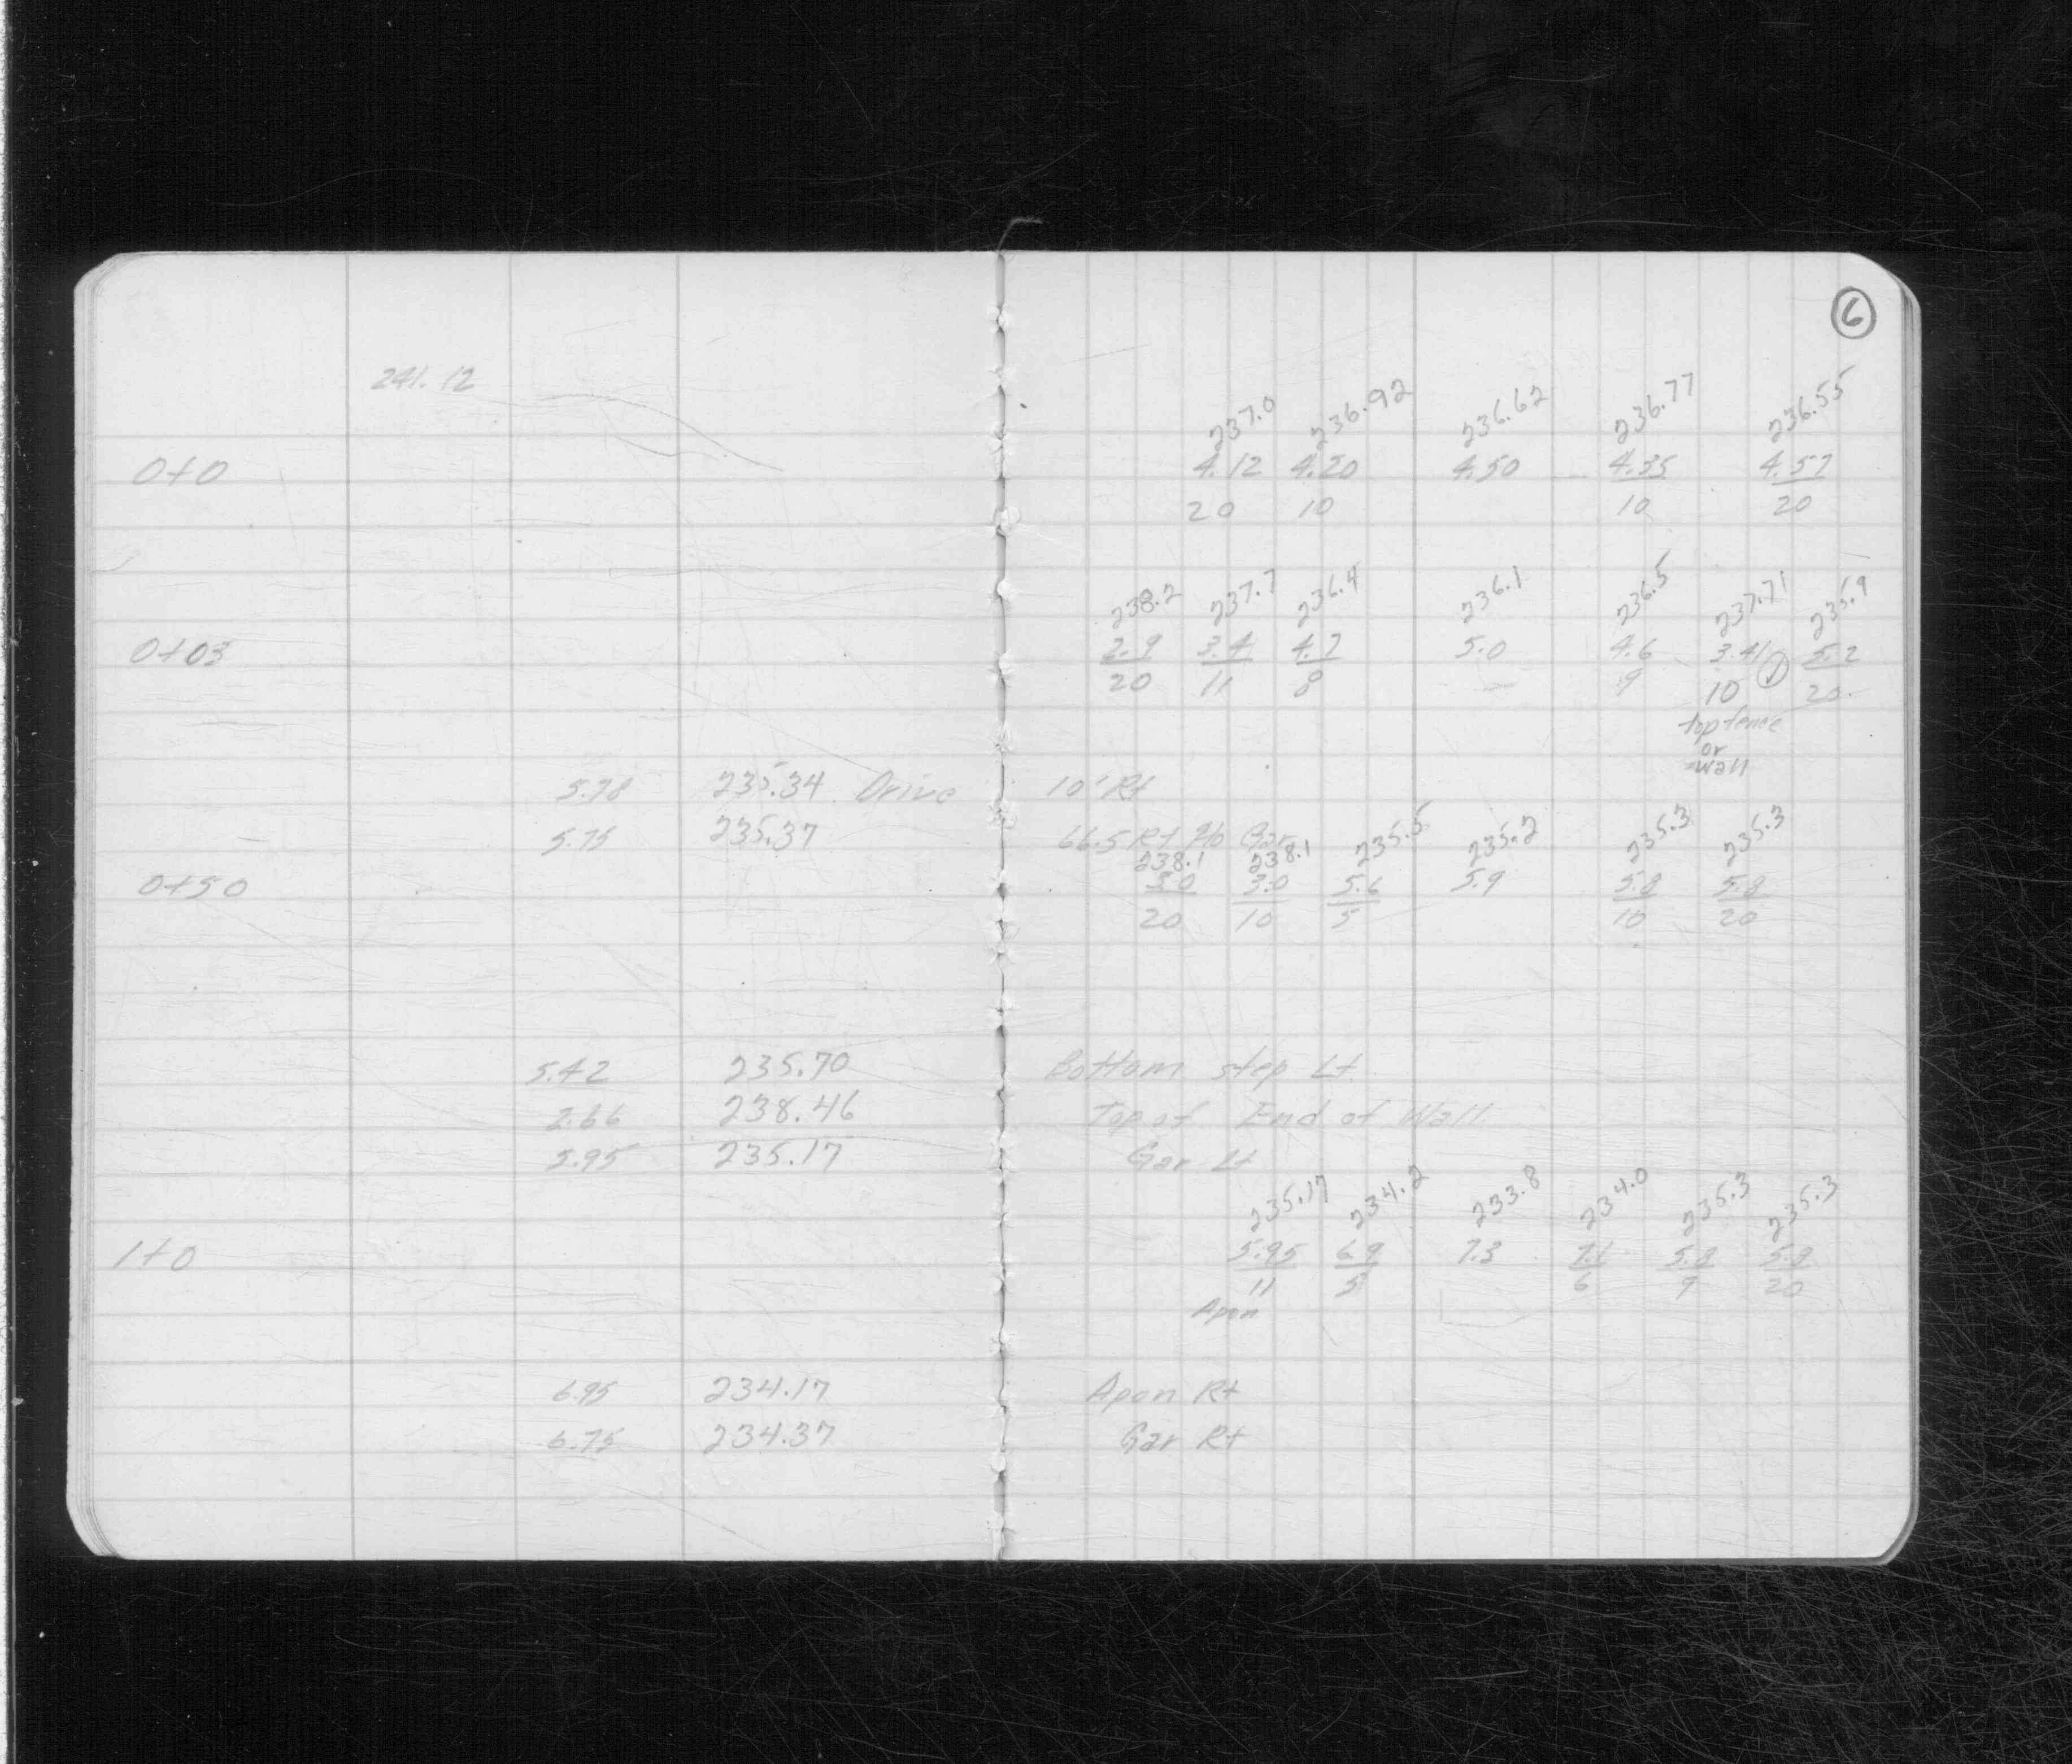 6
241.12
237.0 236.92 236.62 236.77 236.55
0+0 4.12 4.20 4.50 4.35 4.57
20 10 10 20
238.2 237.7 236.4 236.1 236.5 237.71 235.9
0+03 2.9 3.4 4.7 5.0 4.6 3.41 5.2
20 11 8 9 10 ✓ 20
top fence
or
wall
5.78 235.34 Drive 10' Rt
5.75 235.37 66.5 Rt Gar
238.1 238.1 235.5 235.2 235.3 235.3
0+50 3.0 3.0 5.6 5.9 5.8 5.8
20 10 5 10 20
5.42 235.70 Bottom step Lt
2.66 238.46 Top of End of Wall
5.95 235.17 Gar Lt
235.17 234.2 233.8 234.0 235.3 235.3
1+0 5.95 6.9 7.3 7.1 5.8 5.8
11 5 6 9 20
Apon
6.95 234.17 Apon Rt
6.75 234.37 Gar Rt